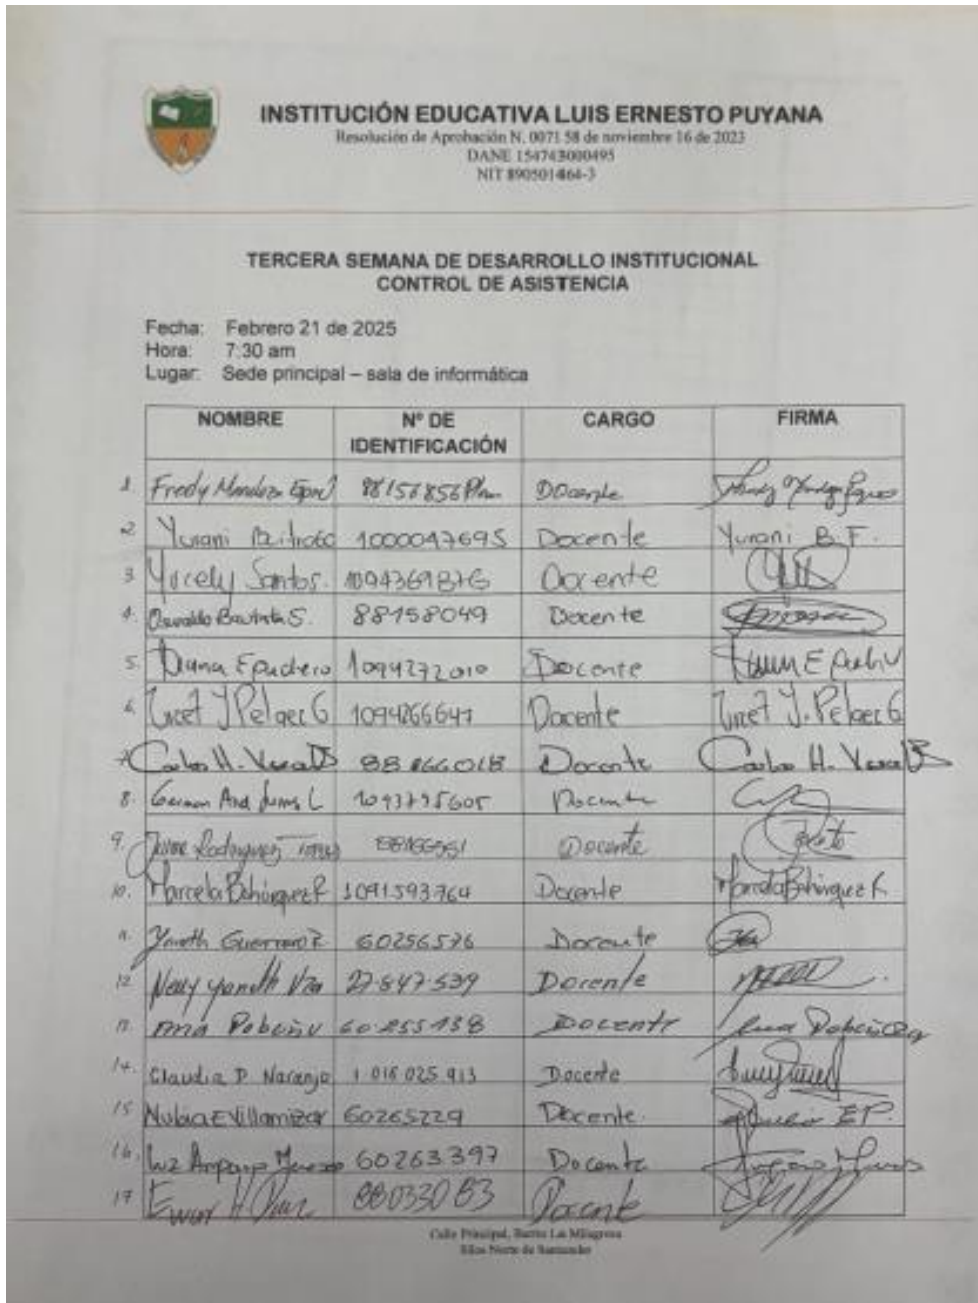 INSTITUCIÓN EDUCATIVA LUIS ERNESTO PUYANA
Resolución de Aprobación N. 0071 58 de noviembre 16 de 2023
DANE 154743000495
NIT 890501464-3
TERCERA SEMANA DE DESARROLLO INSTITUCIONAL
CONTROL DE ASISTENCIA
Fecha: Febrero 21 de 2025
Hora: 7:30 am
Lugar: Sede principal – sala de informática
NOMBRE Nº DE IDENTIFICACIÓN CARGO FIRMA
1 Fredy Mendoza 88156856 Docente
2 Yurani 1000047695 Docente Yurani B. F.
3. Yucely Santos. 1094369876 Docente
4. Osvaldo Bautista S. 88158049 Docente
5. Diana 1094272010 Docente
6. J Pelaez G 1094266647 Docente J. Pelaez G
7. Carlos H. 88166018 Docente Carlos H.
8. German L 1093795605 Docente
9. Jaime Rodriguez Docente
10. Marcela Bohorquez R 1091593764 Docente Marcela Bohorquez R.
11. Yaneth Guerrero 60256576 Docente
12 Nelly Yaneth 27.847.539 Docente
13. 60.255.138 Docente
14. Claudia P Naranjo 1 016 025 913 Docente
15 Nubia E Villamizar 60265229 Docente.
16. Luz Amparo 60263397 Docente
17 88033083 Docente
Calle Principal, Barrio La Milagrosa
Silos Norte de Santander